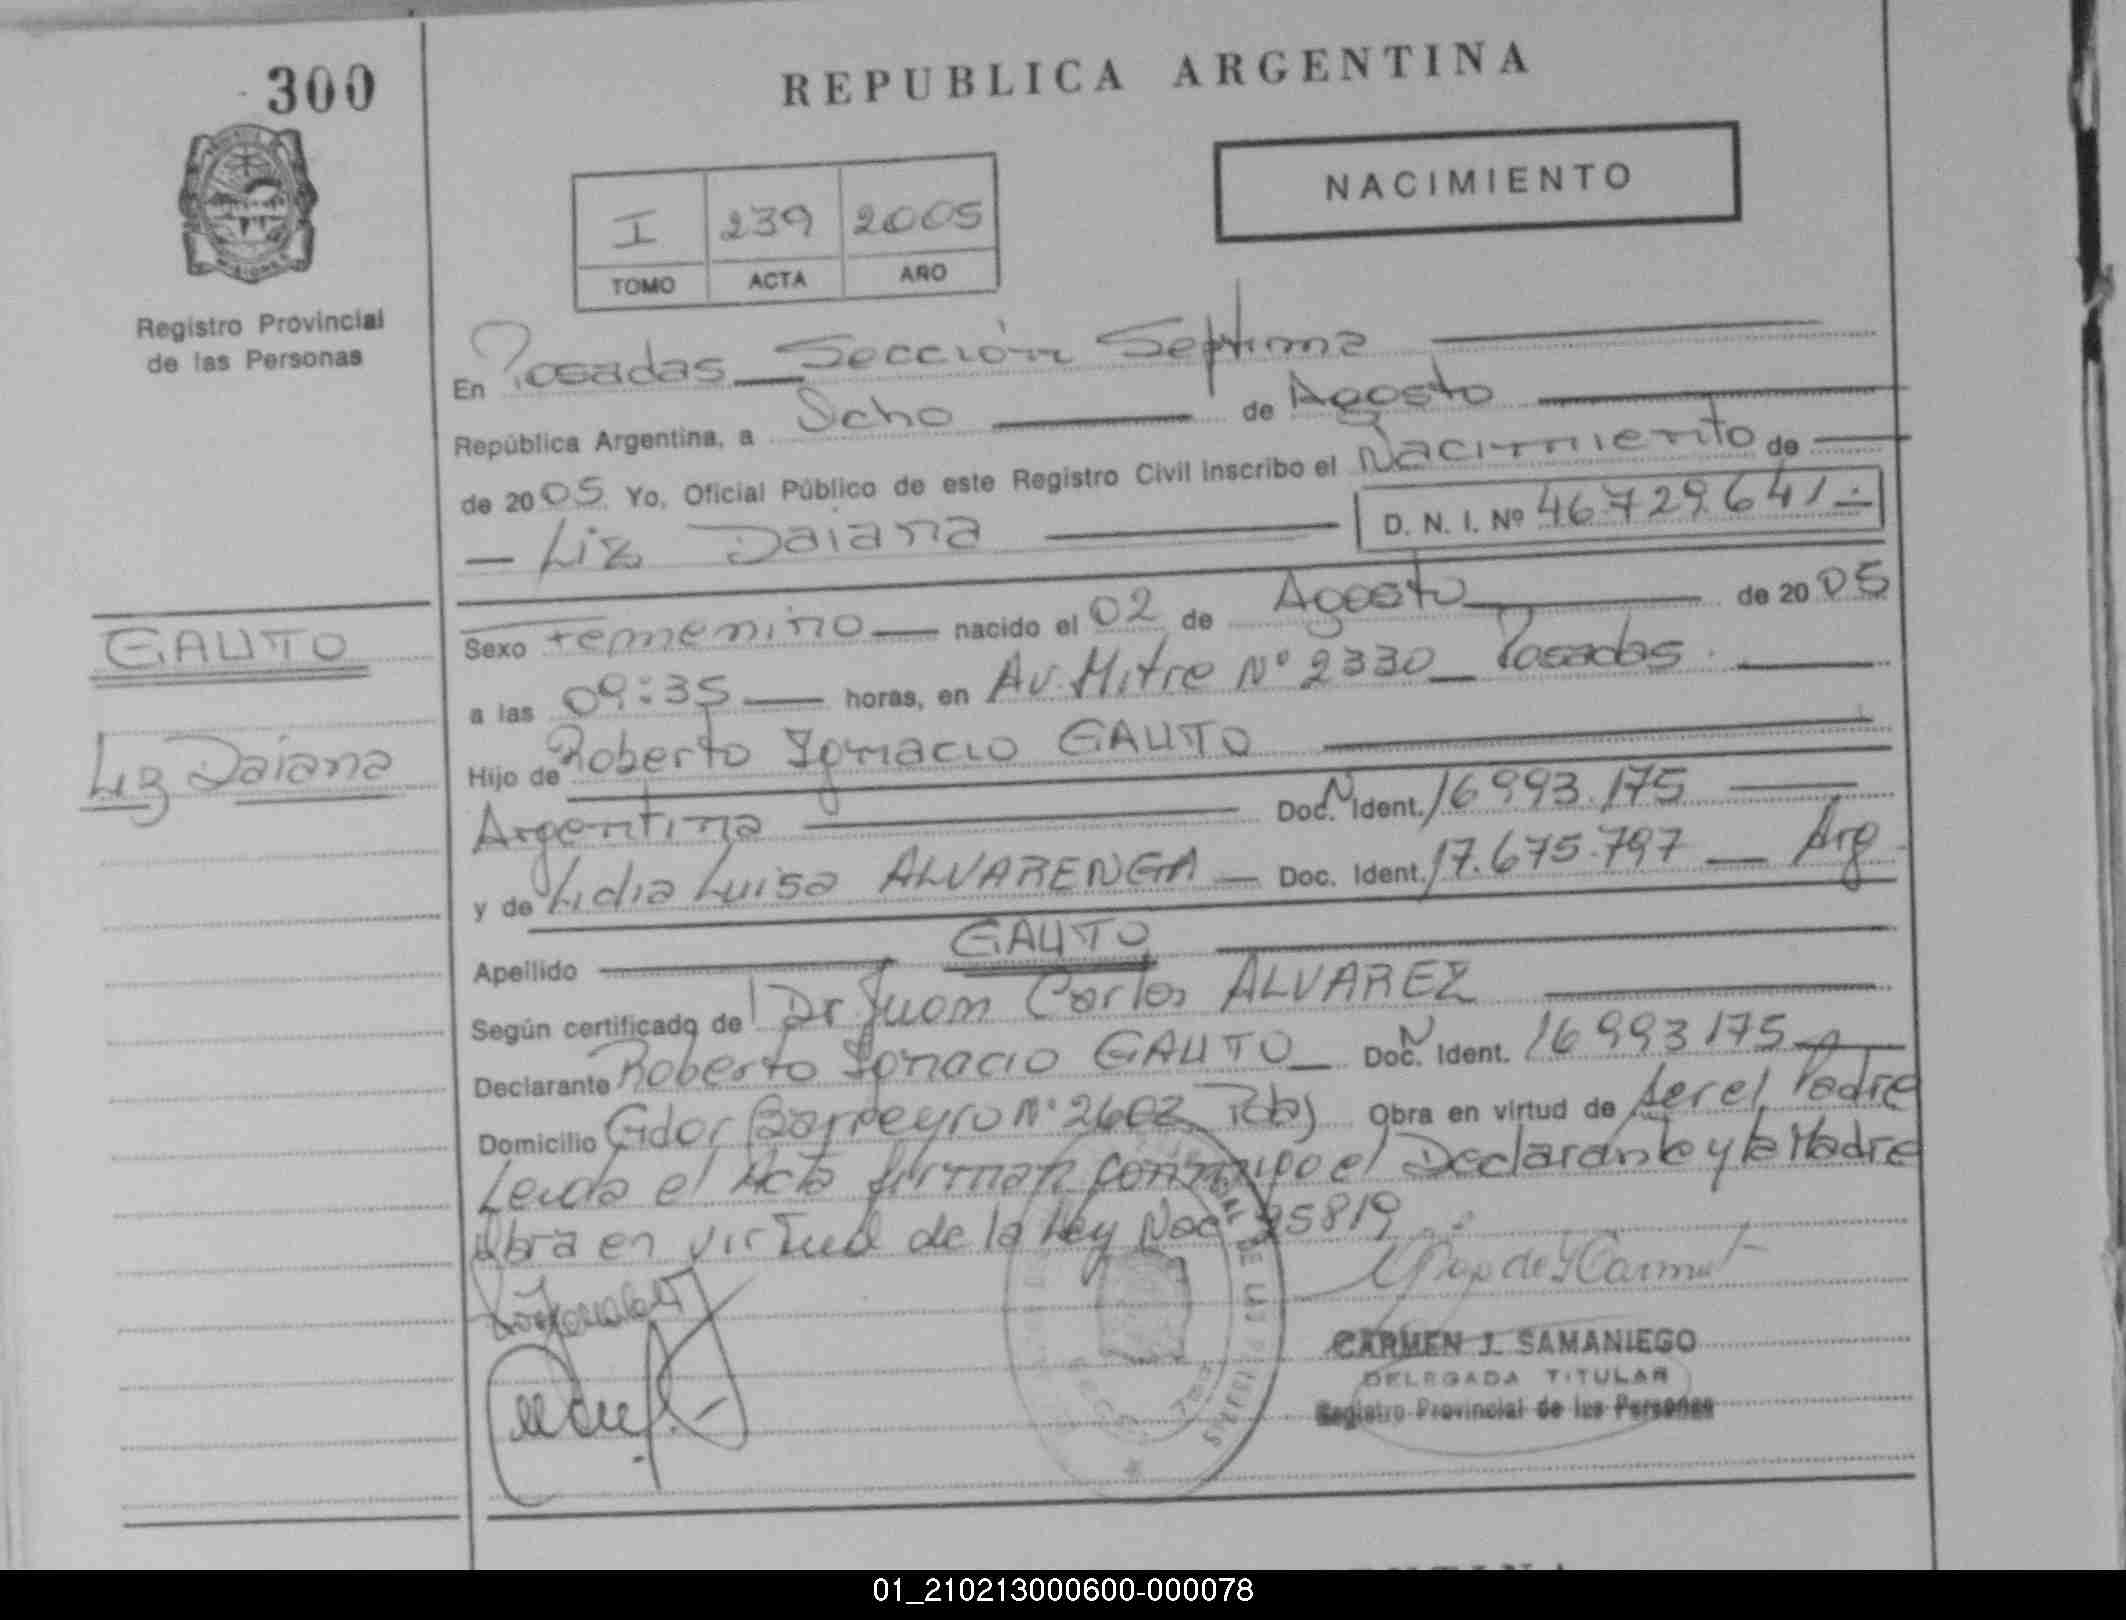 300
REPUBLICA ARGENTINA
NACIMIENTO
I 239 2005
TOMO ACTA AÑO
Registro Provincial
de las Personas
En Posadas Sección Septima
República Argentina, a Ocho de Agosto
de 2005 Yo, Oficial Público de este Registro Civil inscribo el Nacimiento de
Liz Daiana D. N. I. Nº 46.729.641
Sexo Femenino nacido el 02 de Agosto de 2005
GAUTO
a las 09:35 horas, en Av. Mitre Nº 2330 Posadas
Liz Daiana
Hijo de Roberto Ignacio GAUTO
Argentina Doc. N Ident. 16993.175
y de Lidia Luisa ALVARENGA Doc. Ident. 17.675.797 Arg
Apellido GAUTO
Según certificado de Dr Juan Carlos ALVAREZ
Declarante Roberto Ignacio GAUTO Doc. N Ident. 16993175
Domicilio Gdor Barreyro Nº 2602 Pdas Obra en virtud de ser el Padre
Leida el Acta firman conmigo el Declarante y la Madre
Obra en virtud de la Ley Nac 25819
CARMEN J. SAMANIEGO
DELEGADA TITULAR
Registro Provincial de las Personas
01_210213000600-000078